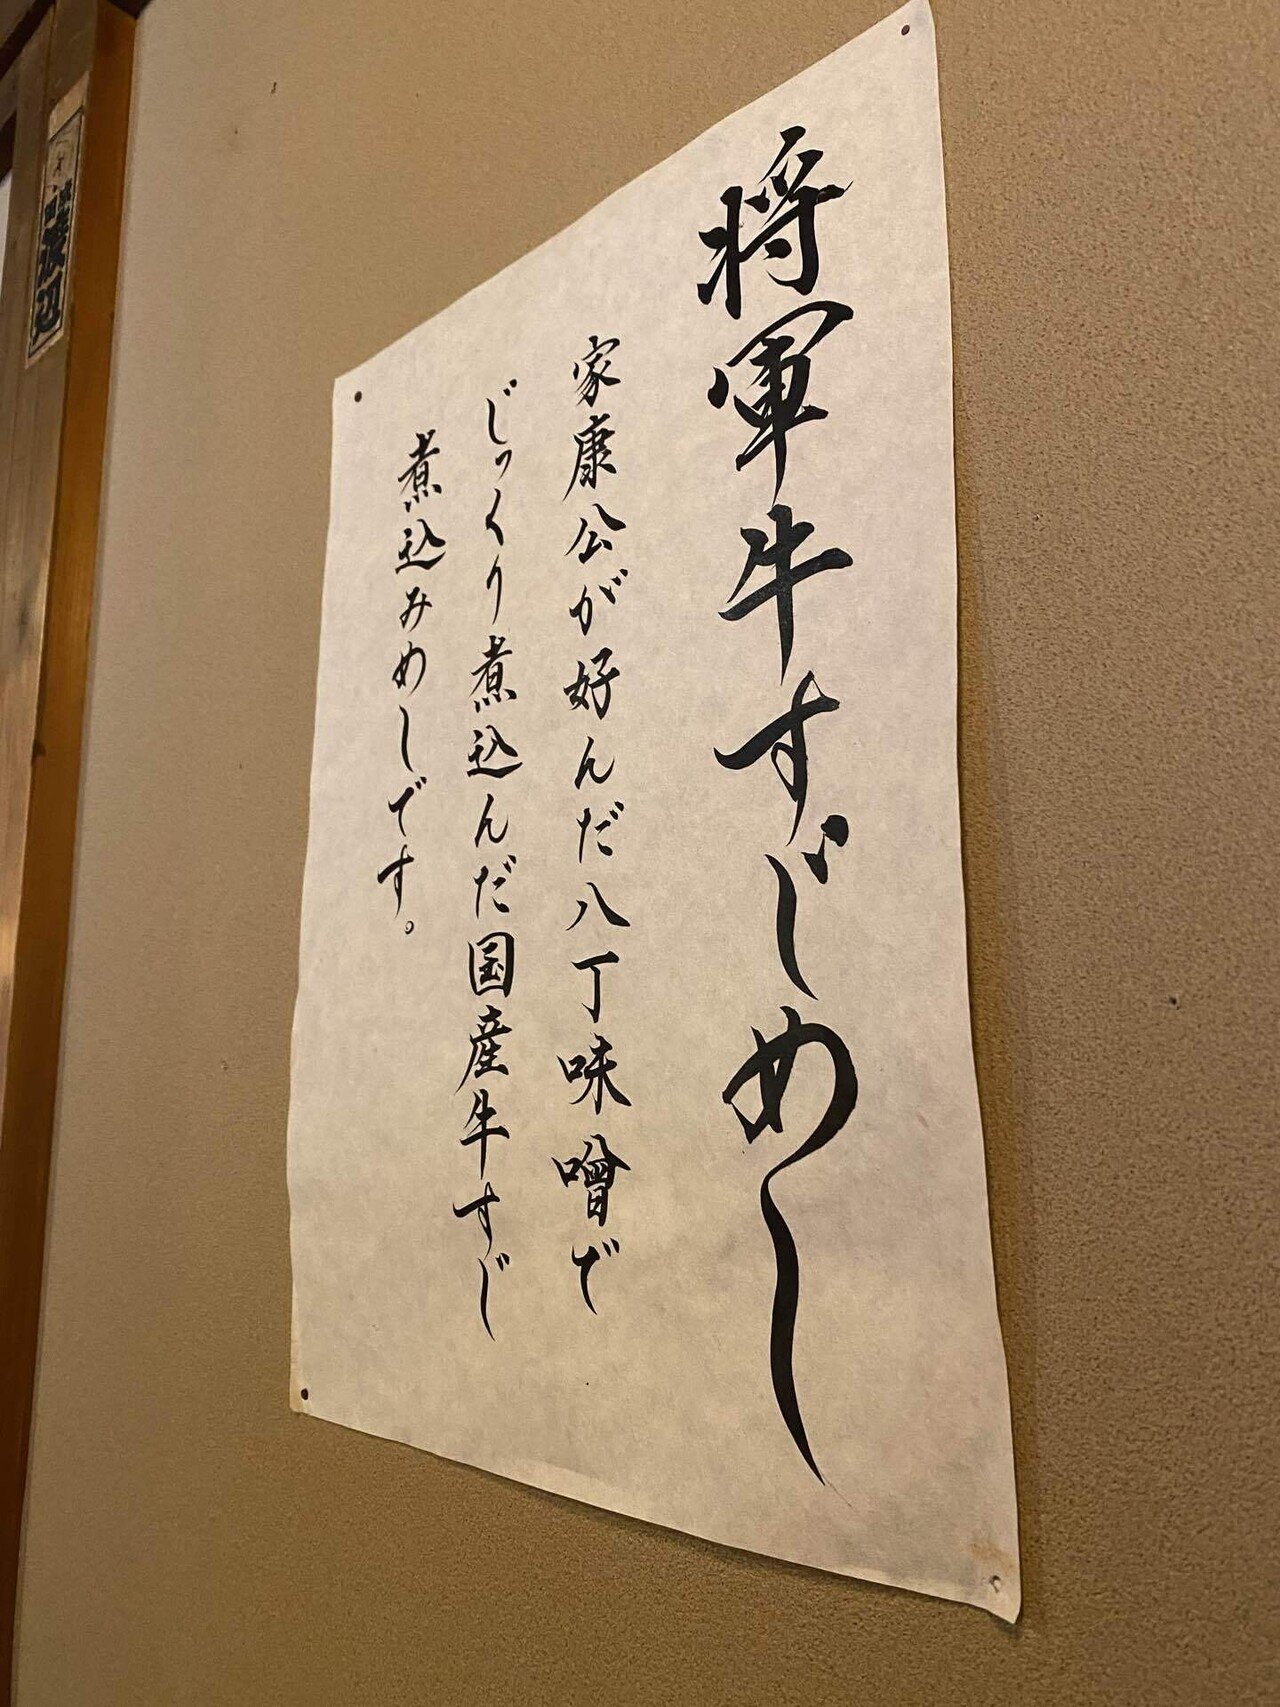 将軍牛すじめし
家康公が好んだ八丁味噌で
じっくり煮込んだ国産牛すじ
煮込みめしです。
渡辺